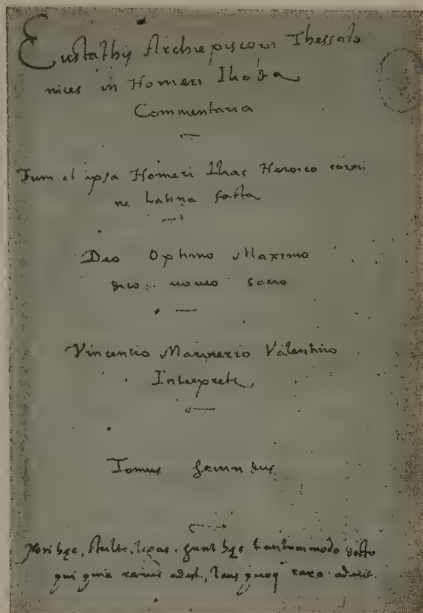 Eustathij Archiepiscopi Thessalo
nices in Homeri Iliada
Commentaria
Tum et ipsa Homeri Ilias Heroico carmi
ne Latina facta
Deo Optimo Maximo
dico voveo sacro
Vincentio Marinerio Valentino
Interprete
Tomus Secundus
hęc, stulte, legas. sunt hęc tantummodo docto
qui quia rarus adest, laus quoq rara aderit.